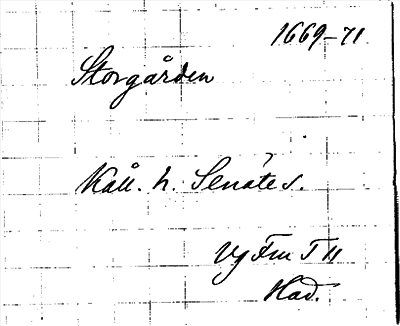 1669-71
Storgården
Kall. h. Senates.
Vj Fm T II
Had.